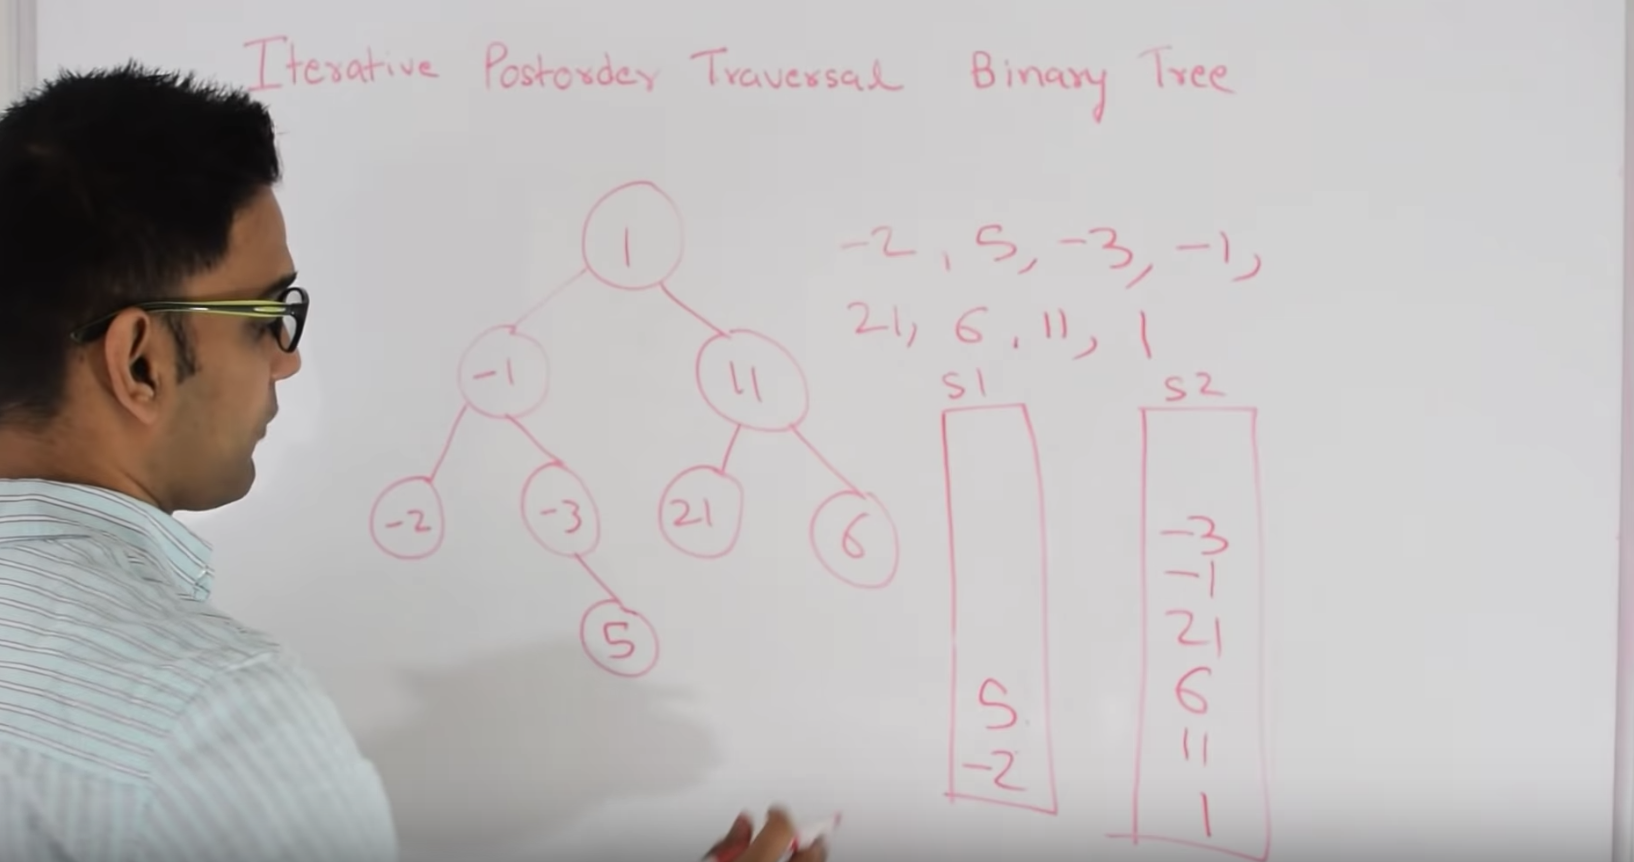 Iterative Postorder Traversal Binary Tree
1
-1 11
-2 -3 21 6
5
-2, 5, -3, -1,
21, 6, 11, 1
S1
5
-2
S2
-3
-1
21
6
11
1